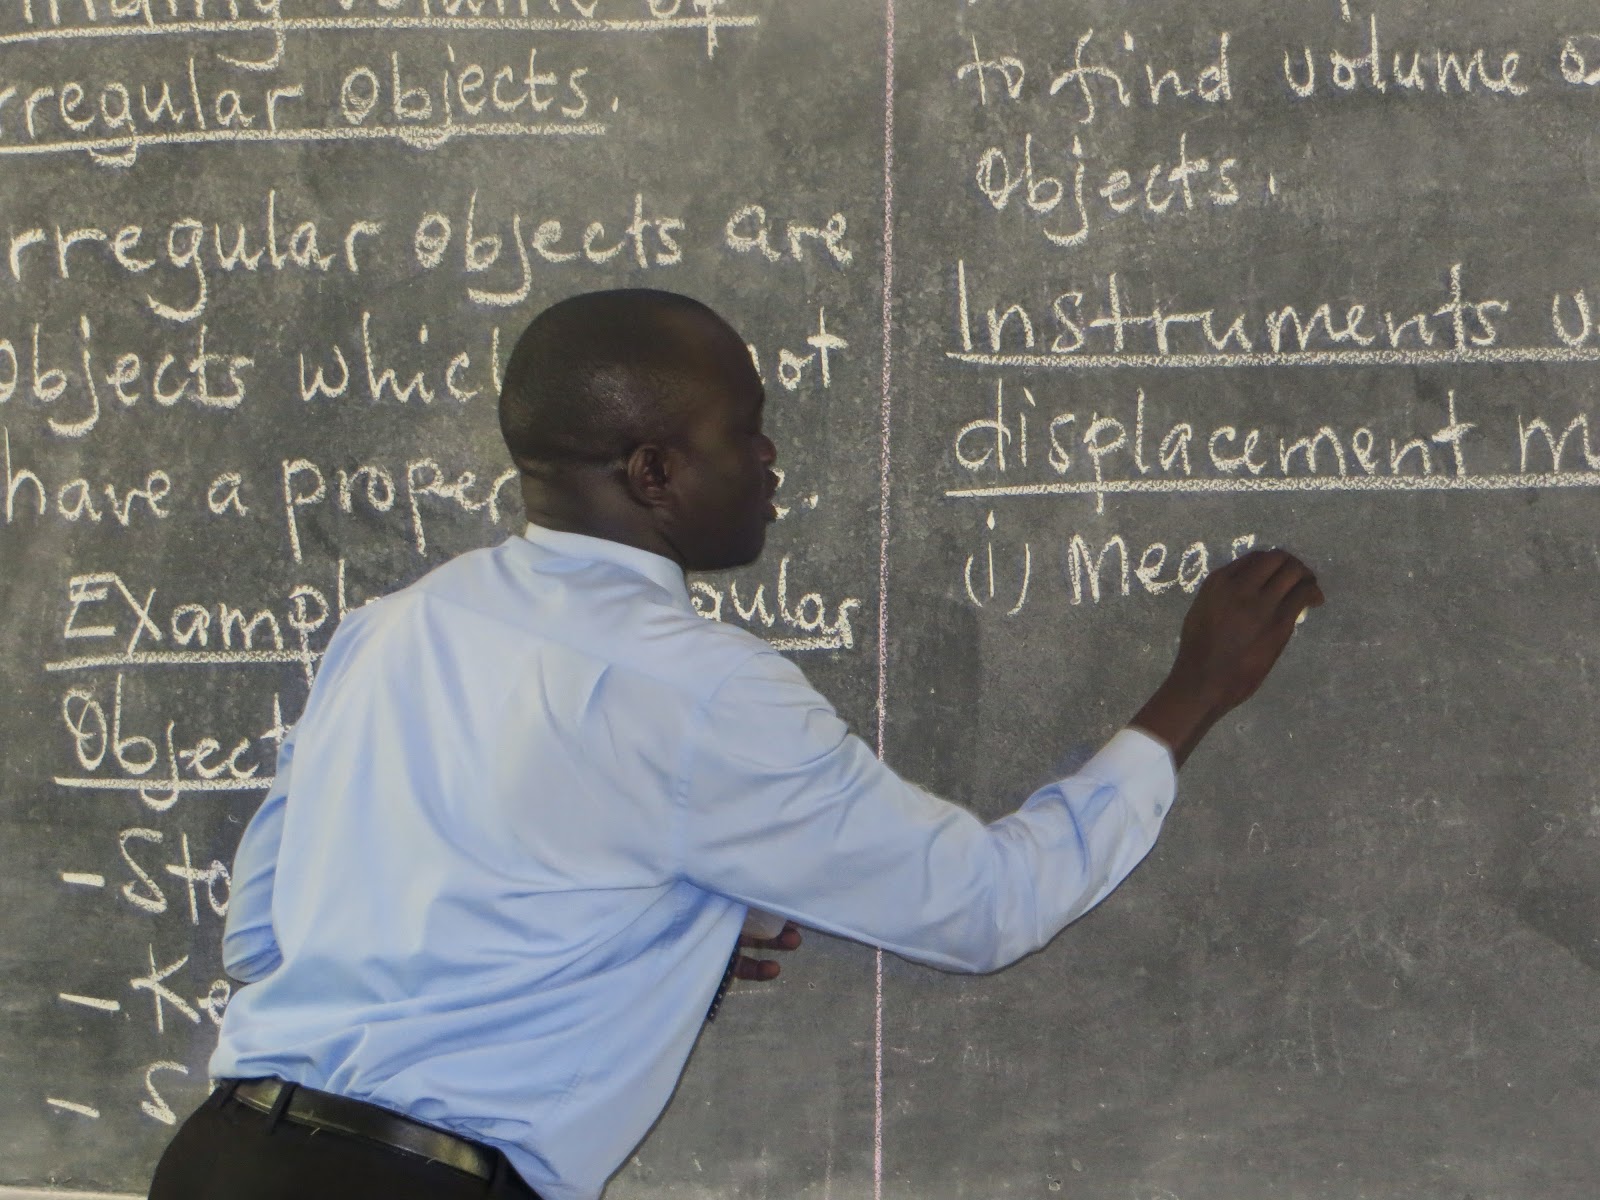 Finding volume of
irregular objects.
Irregular objects are
Objects which not
have a proper
Examp gular
Object
- Sto
- Ke
- S
to find volume o
Objects.
Instruments u
displacement m
(i) Meas